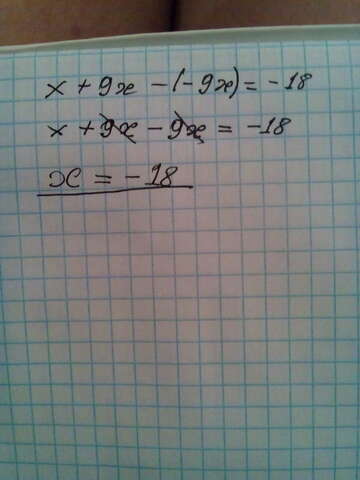 x + 9x - (-9x) = -18
x + 9x - 9x = -18
x = -18